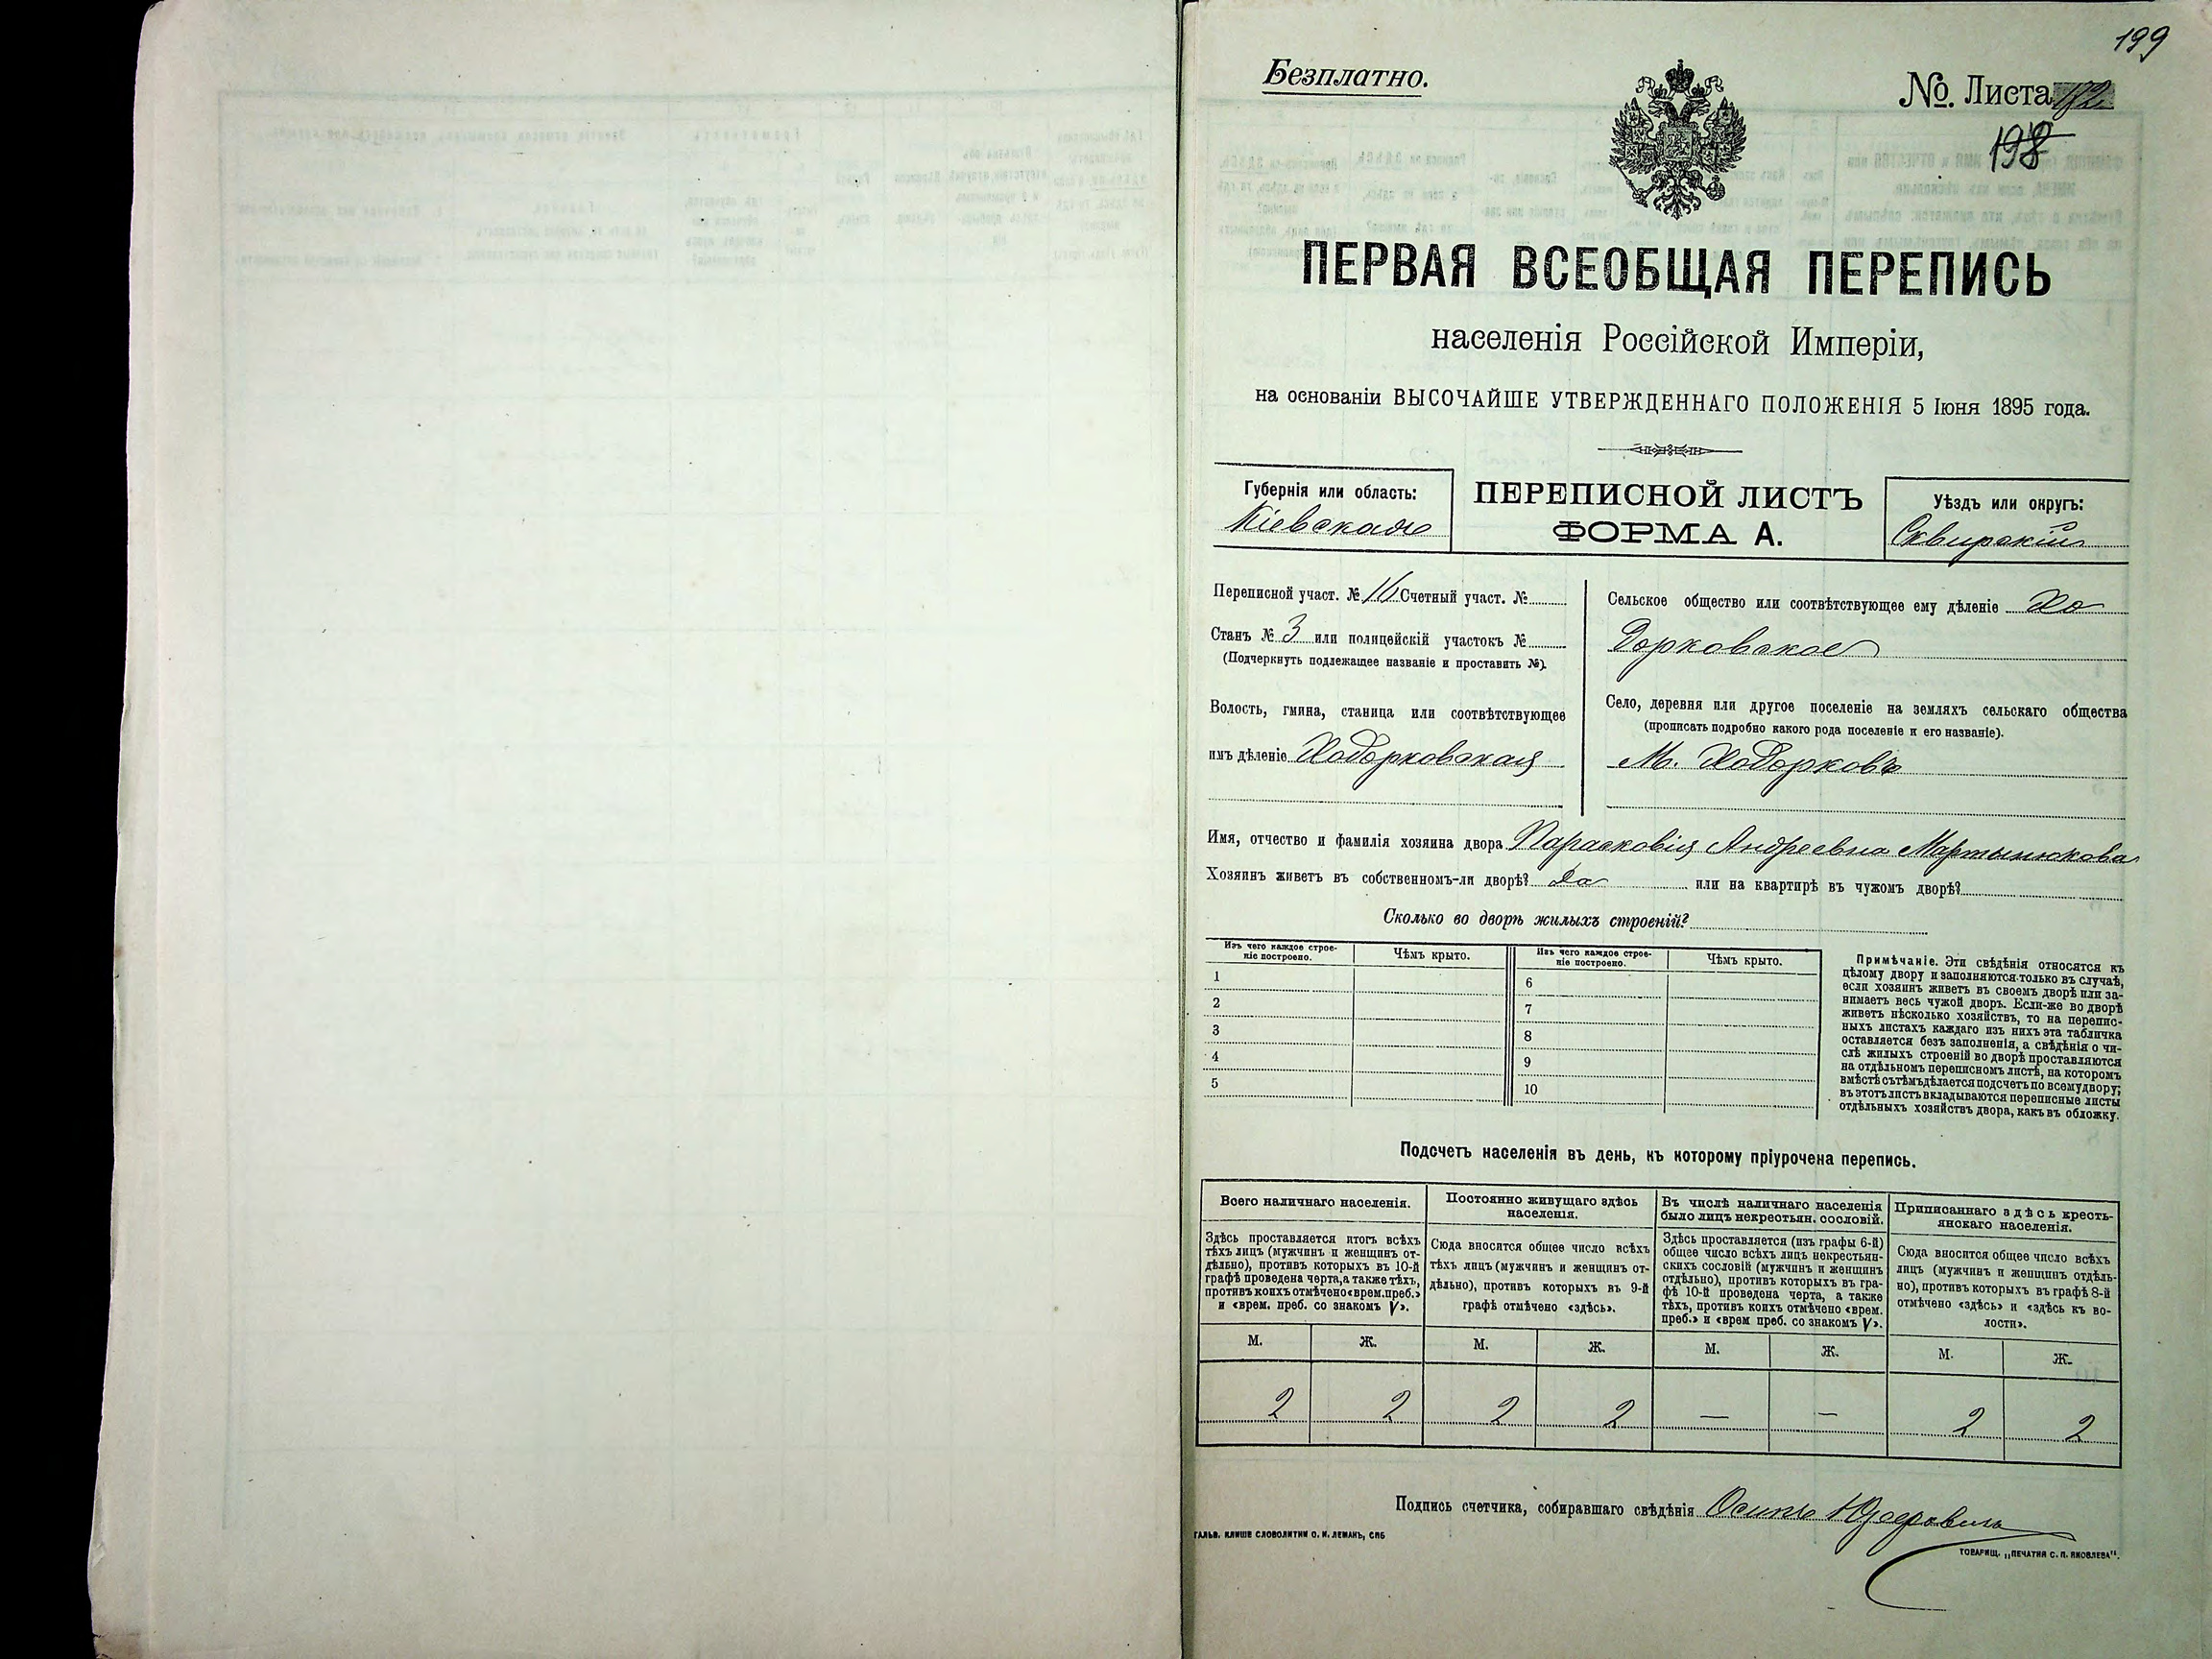 199
Безплатно.
№. Листа
198
ПЕРВАЯ ВСЕОБЩАЯ ПЕРЕПИСЬ
населенія Россійской Имперіи,
на основаніи ВЫСОЧАЙШЕ УТВЕРЖДЕННАГО ПОЛОЖЕНІЯ 5 Іюня 1895 года.
Губернія или область:
Кіевская
ПЕРЕПИСНОЙ ЛИСТЪ
ФОРМА А.
Уѣздъ или округъ:
Сквирскій
Переписной участ. № 16 Счетный участ. №
Станъ № 3 или полицейскій участокъ №
(Подчеркнуть подлежащее названіе и проставить №).
Волость, гмина, станица или соотвѣтствующее
имъ дѣленіе Ходорковская
Сельское общество или соотвѣтствующее ему дѣленіе Хо
дорковское
Село, деревня или другое поселеніе на земляхъ сельскаго общества
(прописать подробно какого рода поселеніе и его названіе).
М. Ходорковъ
Имя, отчество и фамилія хозяина двора Парасковія Андреевна Мартынюкова
Хозяинъ живетъ въ собственномъ-ли дворѣ? Да или на квартирѣ въ чужомъ дворѣ?
Сколько во дворѣ жилыхъ строеній?
Изъ чего каждое строе-
ніе построено.
Чѣмъ крыто.
Изъ чего каждое строе-
ніе построено.
Чѣмъ крыто.
1
2
3
4
5
6
7
8
9
10
Примѣчаніе. Эти свѣдѣнія относятся къ
цѣлому двору и заполняются только въ случаѣ,
если хозяинъ живетъ въ своемъ дворѣ или за-
нимаетъ весь чужой дворъ. Если-же во дворѣ
живетъ нѣсколько хозяйствъ, то на перепис-
ныхъ листахъ каждаго изъ нихъ эта табличка
оставляется безъ заполненія, а свѣдѣнія о чи-
слѣ жилыхъ строеній во дворѣ проставляются
на отдѣльномъ переписномъ листѣ, на которомъ
вмѣстѣ съ тѣмъ дѣлается подсчетъ по всему двору;
въ этотъ листъ вкладываются переписные листы
отдѣльныхъ хозяйствъ двора, какъ въ обложку.
Подсчетъ населенія въ день, къ которому пріурочена перепись.
Всего наличнаго населенія.
Здѣсь проставляется итогъ всѣхъ
тѣхъ лицъ (мужчинъ и женщинъ от-
дѣльно), противъ которыхъ въ 10-й
графѣ проведена черта, а также тѣхъ,
противъ коихъ отмѣчено «врем. преб.»
и «врем. преб. со знакомъ V».
Постоянно живущаго здѣсь
населенія.
Сюда вносится общее число всѣхъ
тѣхъ лицъ (мужчинъ и женщинъ от-
дѣльно), противъ которыхъ въ 9-й
графѣ отмѣчено «здѣсь».
Въ числѣ наличнаго населенія
было лицъ некрестьян. сословій.
Здѣсь проставляется (изъ графы 6-й)
общее число всѣхъ лицъ некрестьян-
скихъ сословій (мужчинъ и женщинъ
отдѣльно), противъ которыхъ въ гра-
фѣ 10-й проведена черта, а также
тѣхъ, противъ коихъ отмѣчено «врем.
преб.» и «врем преб. со знакомъ V».
Приписаннаго здѣсь кресть-
янскаго населенія.
Сюда вносится общее число всѣхъ
лицъ (мужчинъ и женщинъ отдѣль-
но), противъ которыхъ въ графѣ 8-й
отмѣчено «здѣсь» и «здѣсь къ во-
лости».
М. Ж. М. Ж. М. Ж. М. Ж.
2 2 2 2 — — 2 2
Подпись счетчика, собиравшаго свѣдѣнія Осипъ
ГАЛЬВ. КЛИШЕ СЛОВОЛИТНИ О. И. ЛЕМАНЪ, СПБ
ТОВАРИЩ. „ПЕЧАТНЯ С. П. ЯКОВЛЕВА".